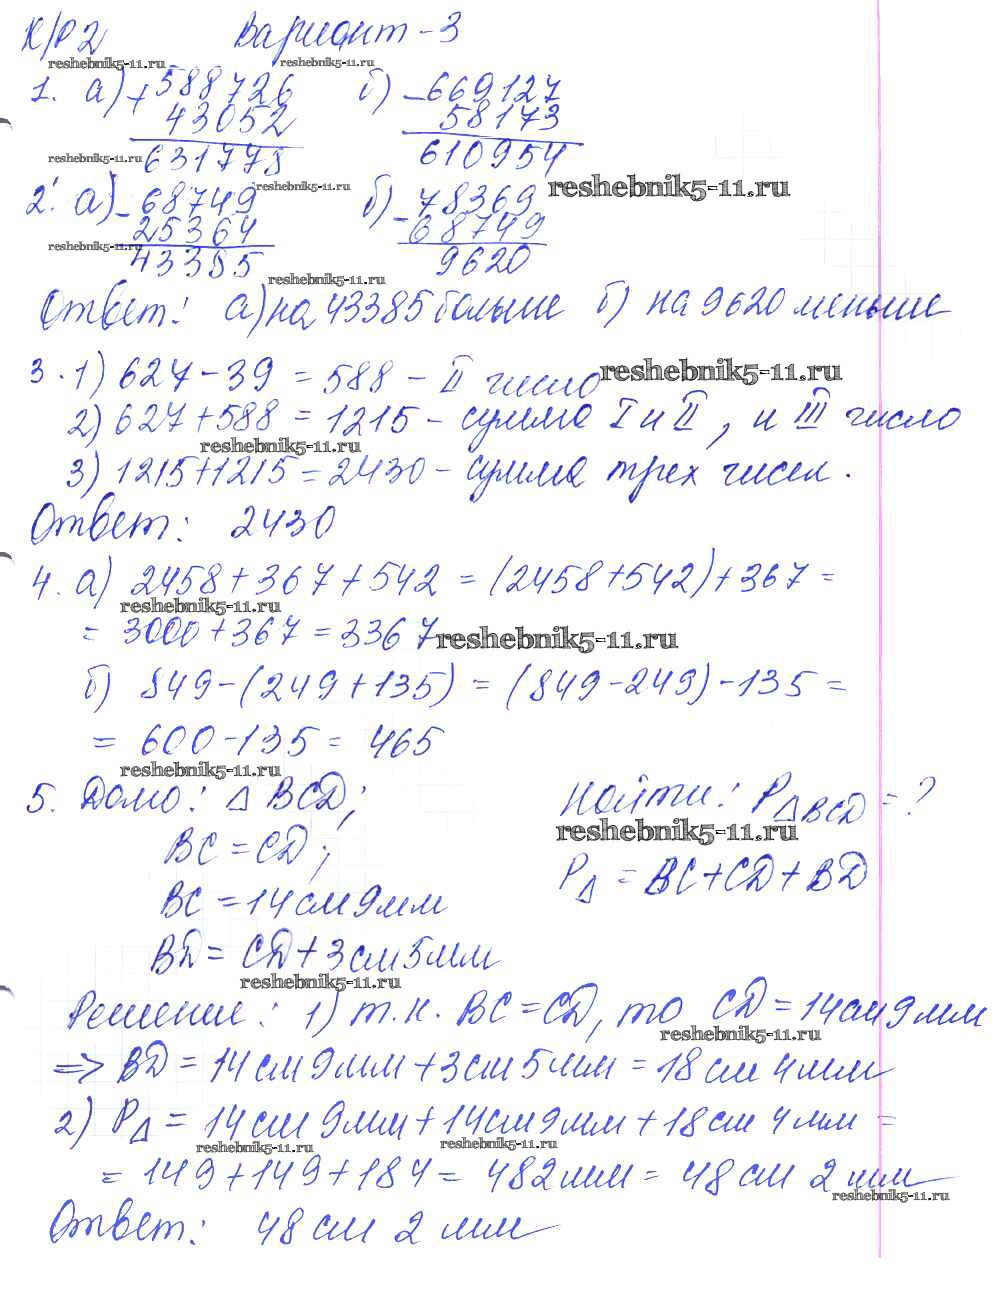 К/Р 2 Вариант - 3
reshebnik5-11.ru reshebnik5-11.ru
1. а) + 588726 б) - 669127
43052 58173
reshebnik5-11.ru 631778 610954
reshebnik5-11.ru reshebnik5-11.ru
2. а) - 68749 б) - 78369
25364 68749
reshebnik5-11.ru
43385 9620
reshebnik5-11.ru
Ответ: а) на 43385 больше б) на 9620 меньше
3. 1) 627 - 39 = 588 - II число reshebnik5-11.ru
2) 627 + 588 = 1215 - сумма I и II, и III число
reshebnik5-11.ru
3) 1215 + 1215 = 2430 - сумма трех чисел.
Ответ: 2430
4. а) 2458 + 367 + 542 = (2458 + 542) + 367 =
reshebnik5-11.ru
= 3000 + 367 = 3367 reshebnik5-11.ru
б) 849 - (249 + 135) = (849 - 249) - 135 =
= 600 - 135 = 465
reshebnik5-11.ru
5. Дано: △ BCD; Найти: P△BCD = ?
reshebnik5-11.ru
BC = CD; P△ = BC + CD + BD
BC = 14 см 9 мм
BD = CD + 3 см 5 мм
reshebnik5-11.ru
Решение: 1) т.к. BC = CD, то CD = 14 см 9 мм
reshebnik5-11.ru
=> BD = 14 см 9 мм + 3 см 5 мм = 18 см 4 мм
2) P△ = 14 см 9 мм + 14 см 9 мм + 18 см 4 мм =
reshebnik5-11.ru reshebnik5-11.ru
= 149 + 149 + 184 = 482 мм = 48 см 2 мм
reshebnik5-11.ru
Ответ: 48 см 2 мм